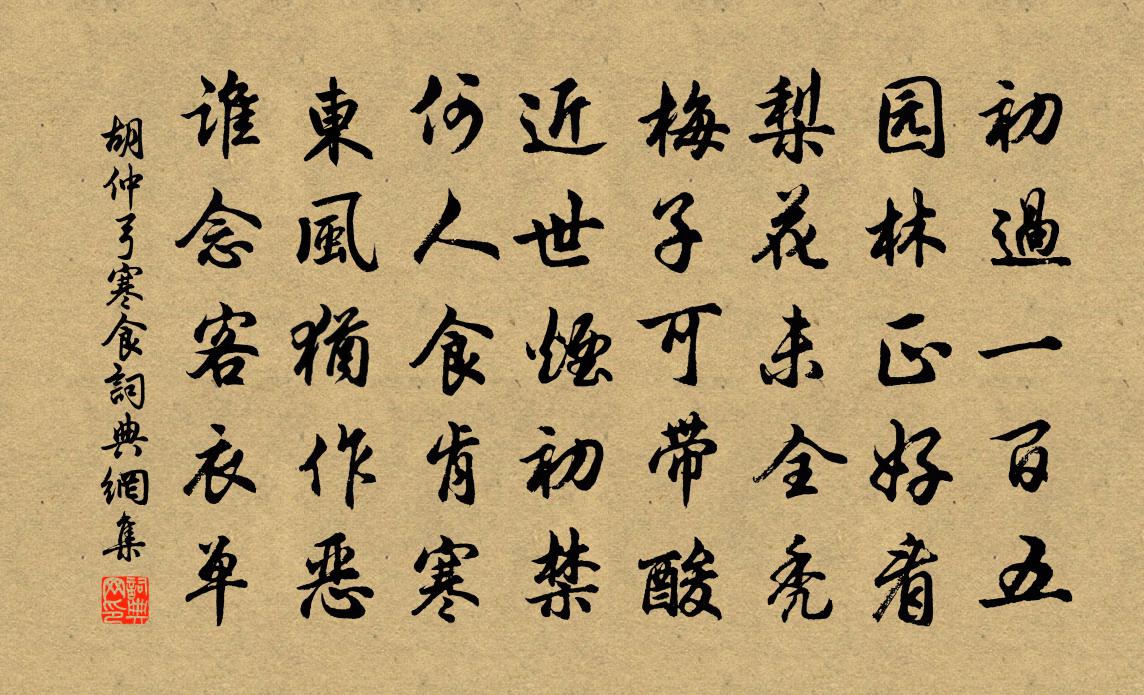 初過一百五
园林正好看
梨花未全秃
梅子可带酸
近世煙初禁
何人食肯寒
東風猶作恶
谁念客衣单
胡仲弓寒食詞典網集
詞典网印